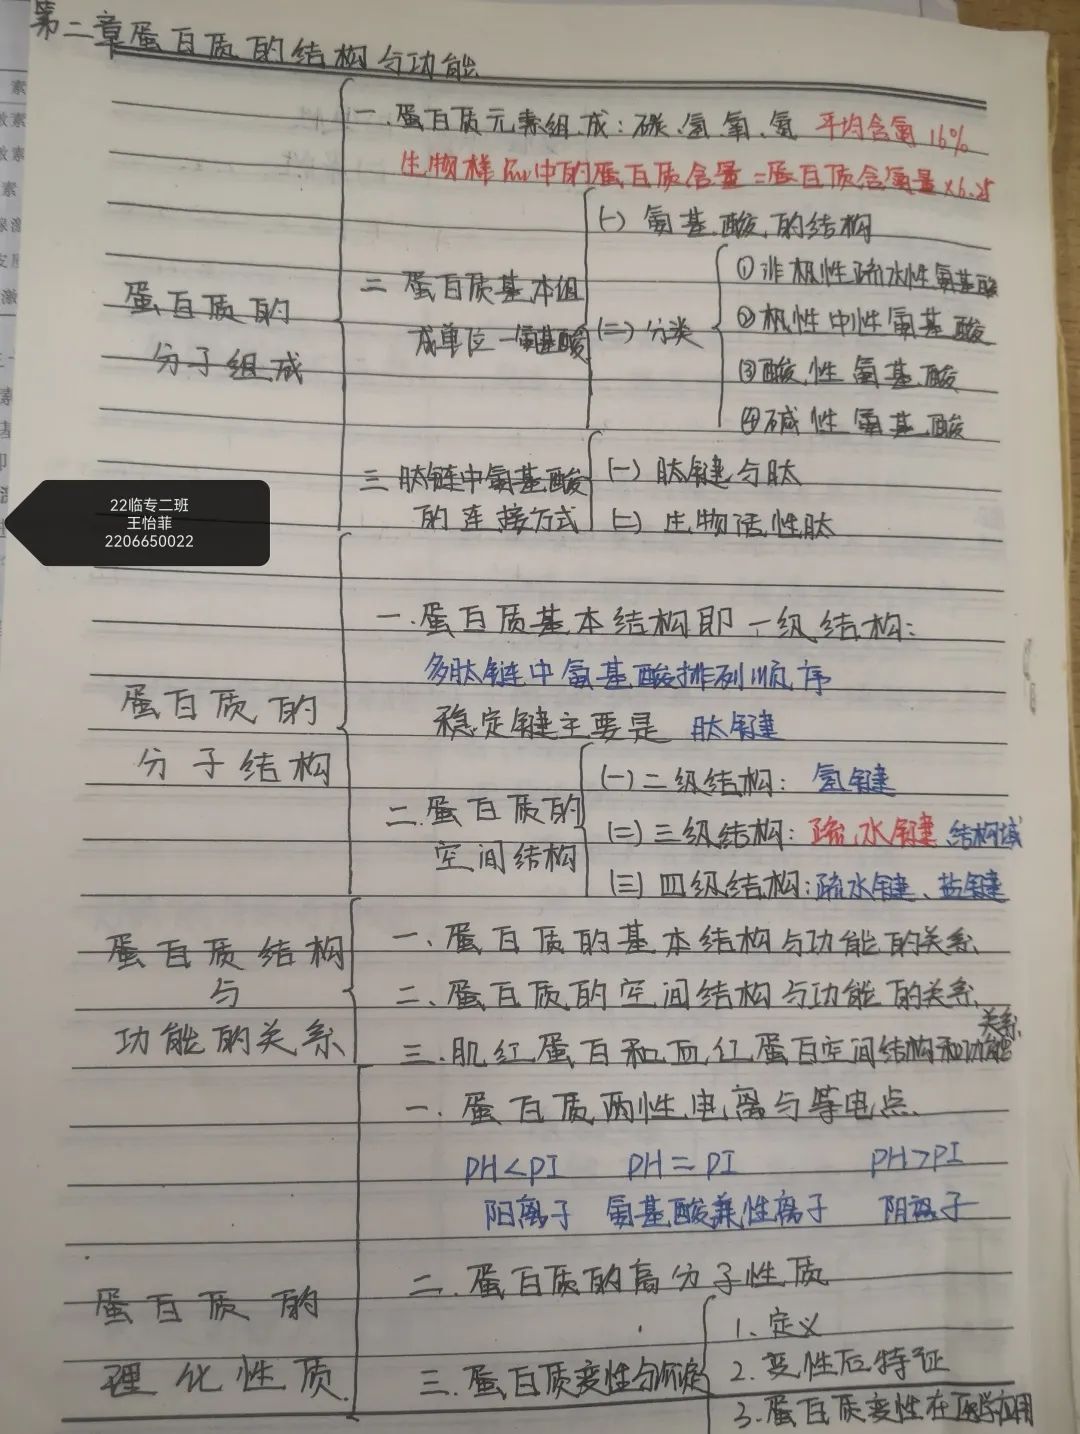 第二章蛋白质的结构与功能
一.蛋白质元素组成:碳、氢、氧、氮 平均含氮16%
生物样品中的蛋白质含量=蛋白质含氮量×6.25
蛋白质的
分子组成
二 蛋白质基本组
成单位—氨基酸
(一) 氨基酸的结构
(二) 分类
①非极性疏水性氨基酸
②极性中性氨基酸
③酸性氨基酸
④碱性氨基酸
三 肽链中氨基酸
的连接方式
(一) 肽键与肽
(二) 生物活性肽
22临专二班
王怡菲
2206650022
蛋白质的
分子结构
一.蛋白质基本结构即一级结构:
多肽链中氨基酸排列顺序
稳定键主要是 肽键
二.蛋白质的
空间结构
(一)二级结构: 氢键
(二)三级结构:疏水键 结构域
(三)四级结构:疏水键、盐键
蛋白质结构
与
功能的关系
一、蛋白质的基本结构与功能的关系
二、蛋白质的空间结构与功能的关系
三.肌红蛋白和血红蛋白空间结构和功能关系
蛋白质的
理化性质
一.蛋白质两性电离与等电点
PH<PI PH=PI PH>PI
阳离子 氨基酸兼性离子 阴离子
二.蛋白质的高分子性质
三.蛋白质变性与
1、定义
2.变性后特征
3.蛋白质变性在医学应用